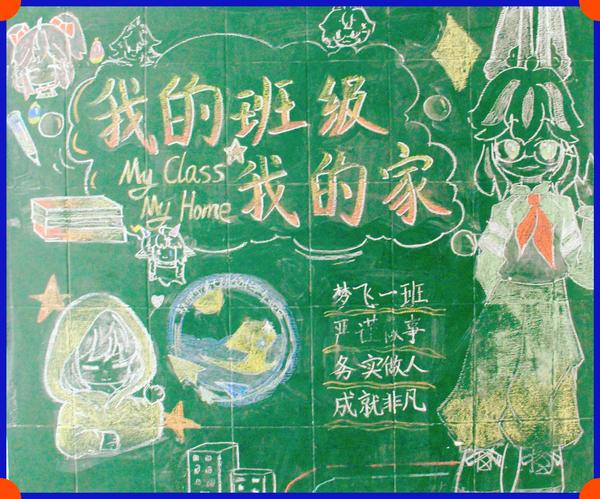 我的班级
My Class
我的家
My Home
梦飞一班
严谨做事
务实做人
成就非凡